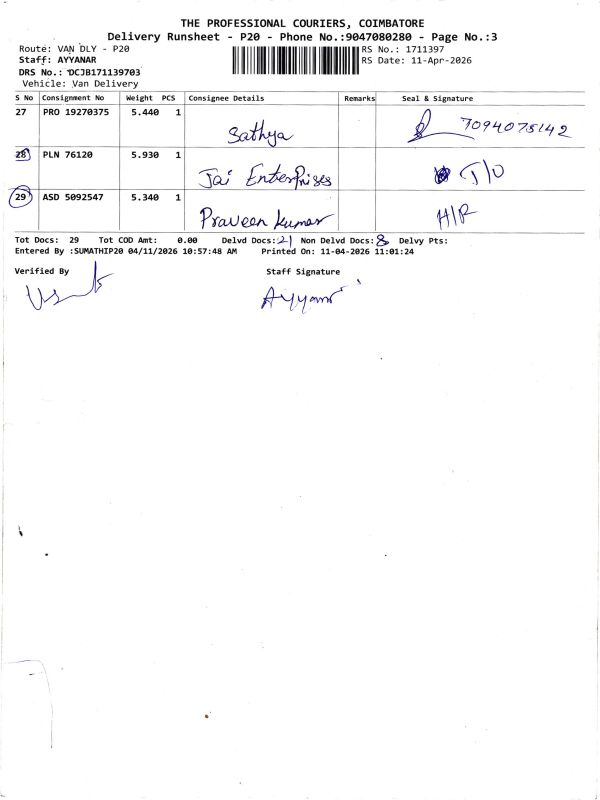 THE PROFESSIONAL COURIERS, COIMBATORE
Delivery Runsheet - P20 - Phone No.:9047080280 - Page No.:3
Route: VAN DLY - P20 RS No.: 1711397
Staff: AYYANAR RS Date: 11-Apr-2026
DRS No.: DCJB171139703
Vehicle: Van Delivery
S No Consignment No Weight PCS Consignee Details Remarks Seal & Signature
27 PRO 19270375 5.440 1 Sathya 7094075142
28 PLN 76120 5.930 1 Jai Enterprises
29 ASD 5092547 5.340 1 Praveen Kumar
Tot Docs: 29 Tot COD Amt: 0.00 Delvd Docs:21 Non Delvd Docs:8 Delvy Pts:
Entered By :SUMATHIP20 04/11/2026 10:57:48 AM Printed On: 11-04-2026 11:01:24
Verified By Staff Signature
Ayyanar